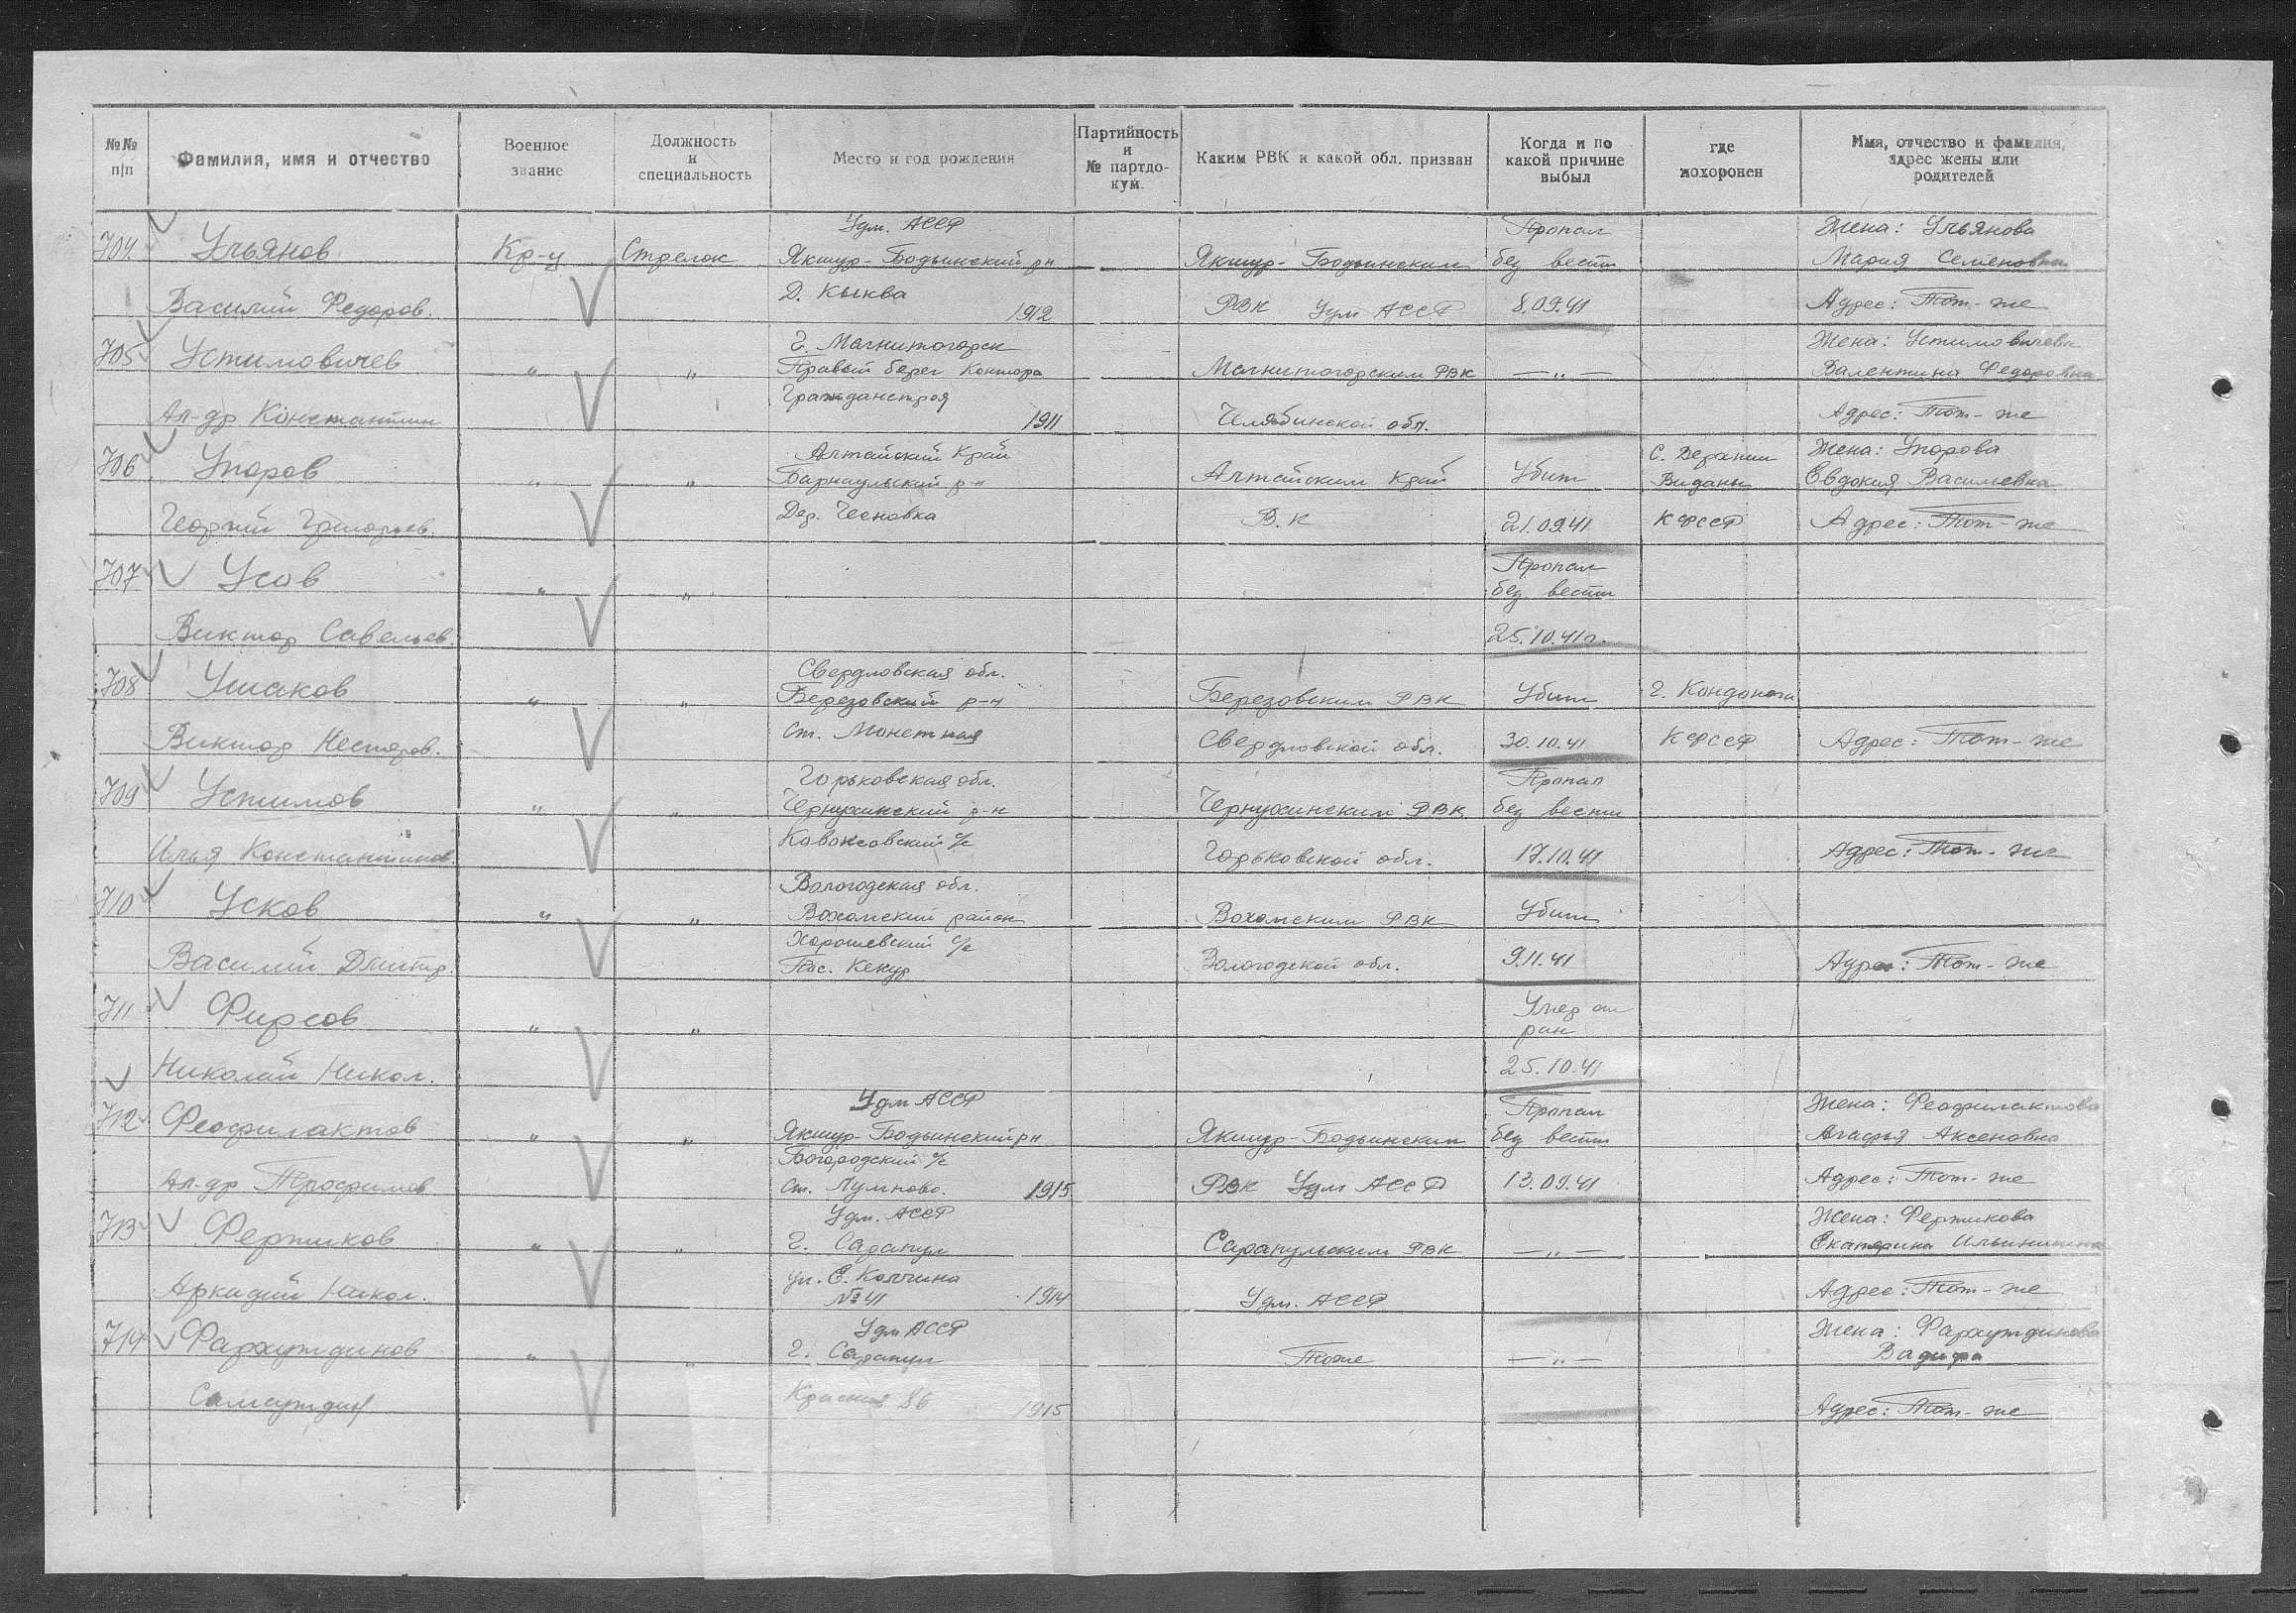 №№ п/п
Фамилия, имя и отчество
Военное звание
Должность и специальность
Место и год рождения
Партийность и № партдокум.
Каким РВК и какой обл. призван
Когда и по какой причине выбыл
где похоронен
Имя, отчество и фамилия, адрес жены или родителей
Удм. АССР Пропал Жена: Ульянова
704 Ульянов Кр-ц Стрелок Якшур-Бодьинский рн Якшур-Бодьинским без вести Мария Семеновна
Василий Федоров. Д. Кыква 1912 РВК Удм АССР 8.09.41 Адрес: Тот-же
г. Магнитогорск Жена: Устимовичева
705 Устимовичев " " Правый берег Контора Магнитогорским РВК — " — Валентина Федоровна
Ал-др Константин Гражданстроя 1911 Челябинской обл. Адрес: Тот-же
Алтайский Край С. Верхнии Жена: Упорова
706 Упоров " " Барнаульский р-н Алтайским Край Убит Виданы Евдокия Васильевна
Георгий Григорьев. Дер. Чесновка В.К 21.09.41 КФССР Адрес: Тот-же
Пропал
707 Усов " " без вести
Виктор Савельев. 25.10.41г.
Свердловская обл.
708 Ушаков " " Березовский р-н Березовским РВК Убит г. Кондопога
Виктор Нестеров. Ст. Монетная Свердловской обл. 30.10.41 КФССР Адрес: Тот-же
Горьковская обл. Пропал
709 Устимов " " Чернухинский р-н Чернухинским РВК без вести
Илья Константинов. с/с Горьковской обл. 17.10.41 Адрес: Тот-же
Вологодская обл.
710 Усков " " Вохомский район Вохомским РВК Убит
Василий Дмитр. Хорошевский с/с Вологодской обл. 9.11.41 Адрес: Тот-же
Пос. Кекур
711 Фирсов " " Умер от ран
Николай Никол. 25.10.41
Удм АССР Пропал Жена: Феофилактова
712 Феофилактов " " Якшур-Бодьинский рн Якшур-Бодьинским без вести Агафья Аксеновна
Богородский с/с
Ал-др Трофимов. ст. 1915 РВК Удм АССР 13.09.41 Адрес: Тот-же
Удм. АССР Жена: Ферпикова
713 Ферпиков " " г. Сарапул Сарапульским РВК — " — Екатерина Ильинична
Аркадий Никол. ул. Е. Колчина Удм. АССР Адрес: Тот-же
№ 41 1914
Удм АССР Жена: Фархутдинова
714 Фархутдинов " " г. Сарапул Тоже — " —
Самсутдин Красная 86 1915 Адрес: Тот-же